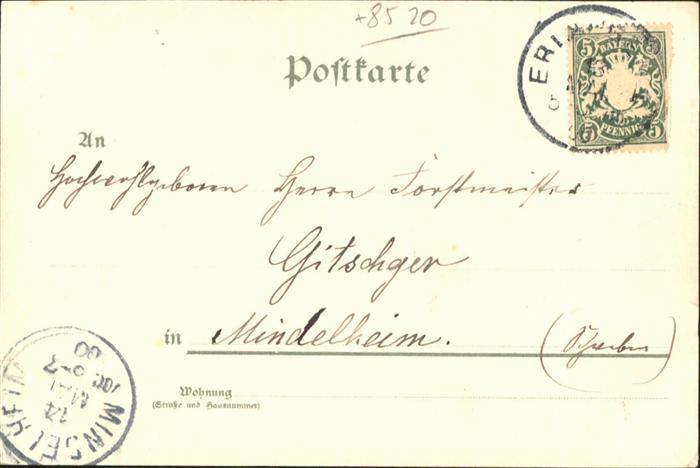 +85 20
Postkarte
5 BAYERN 5
5 PFENNIG 5
An
Hochwohlgeboren Herrn Forstmeister
Gitschger
in Mindelheim.
(Schwaben)
Wohnung
(Straße und Hausnummer)
MINDELHEIM
14
MAI
00